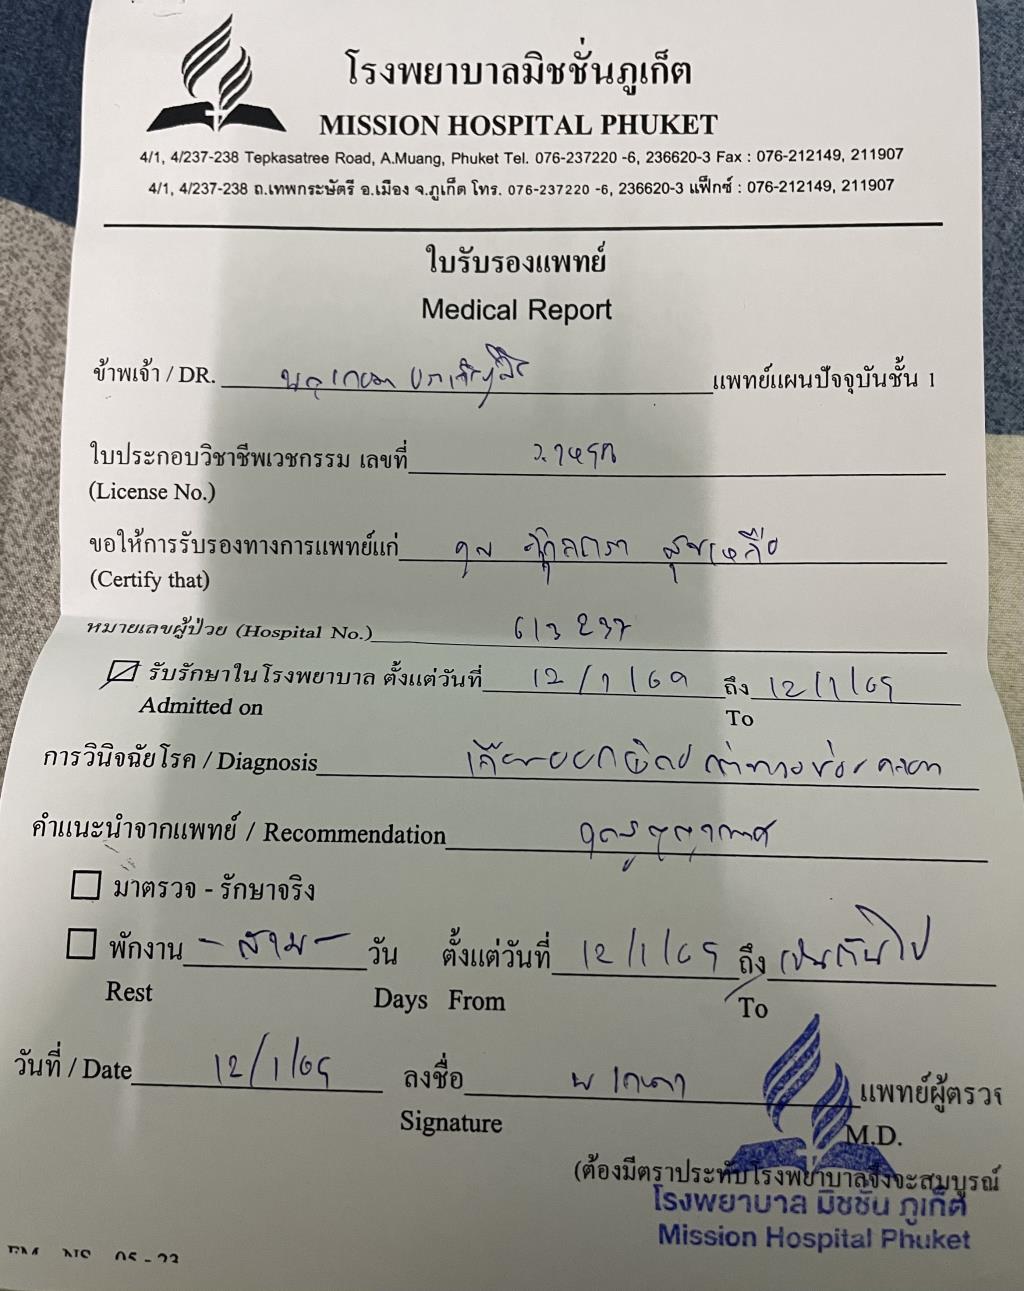 โรงพยาบาลมิชชั่นภูเก็ต
MISSION HOSPITAL PHUKET
4/1, 4/237-238 Tepkasatree Road, A.Muang, Phuket Tel. 076-237220 -6, 236620-3 Fax : 076-212149, 211907
4/1, 4/237-238 ถ.เทพกระษัตรี อ.เมือง จ.ภูเก็ต โทร. 076-237220 -6, 236620-3 แฟ็กซ์ : 076-212149, 211907
ใบรับรองแพทย์
Medical Report
ข้าพเจ้า / DR. แพทย์แผนปัจจุบันชั้น 1
ใบประกอบวิชาชีพเวชกรรม เลขที่
(License No.)
ขอให้การรับรองทางการแพทย์แก่ คุณ
(Certify that)
หมายเลขผู้ป่วย (Hospital No.) 613237
รับรักษาในโรงพยาบาล ตั้งแต่วันที่ 12/1/69 ถึง 12/1/69
Admitted on To
การวินิจฉัยโรค / Diagnosis
คำแนะนำจากแพทย์ / Recommendation
มาตรวจ - รักษาจริง
พักงาน - สาม - วัน ตั้งแต่วันที่ 12/1/69 ถึง เป็นต้นไป
Rest Days From To
วันที่ / Date 12/1/69 ลงชื่อ แพทย์ผู้ตรวจ
Signature M.D.
(ต้องมีตราประทับโรงพยาบาลจึงจะสมบูรณ์
โรงพยาบาล มิชชั่น ภูเก็ต
Mission Hospital Phuket